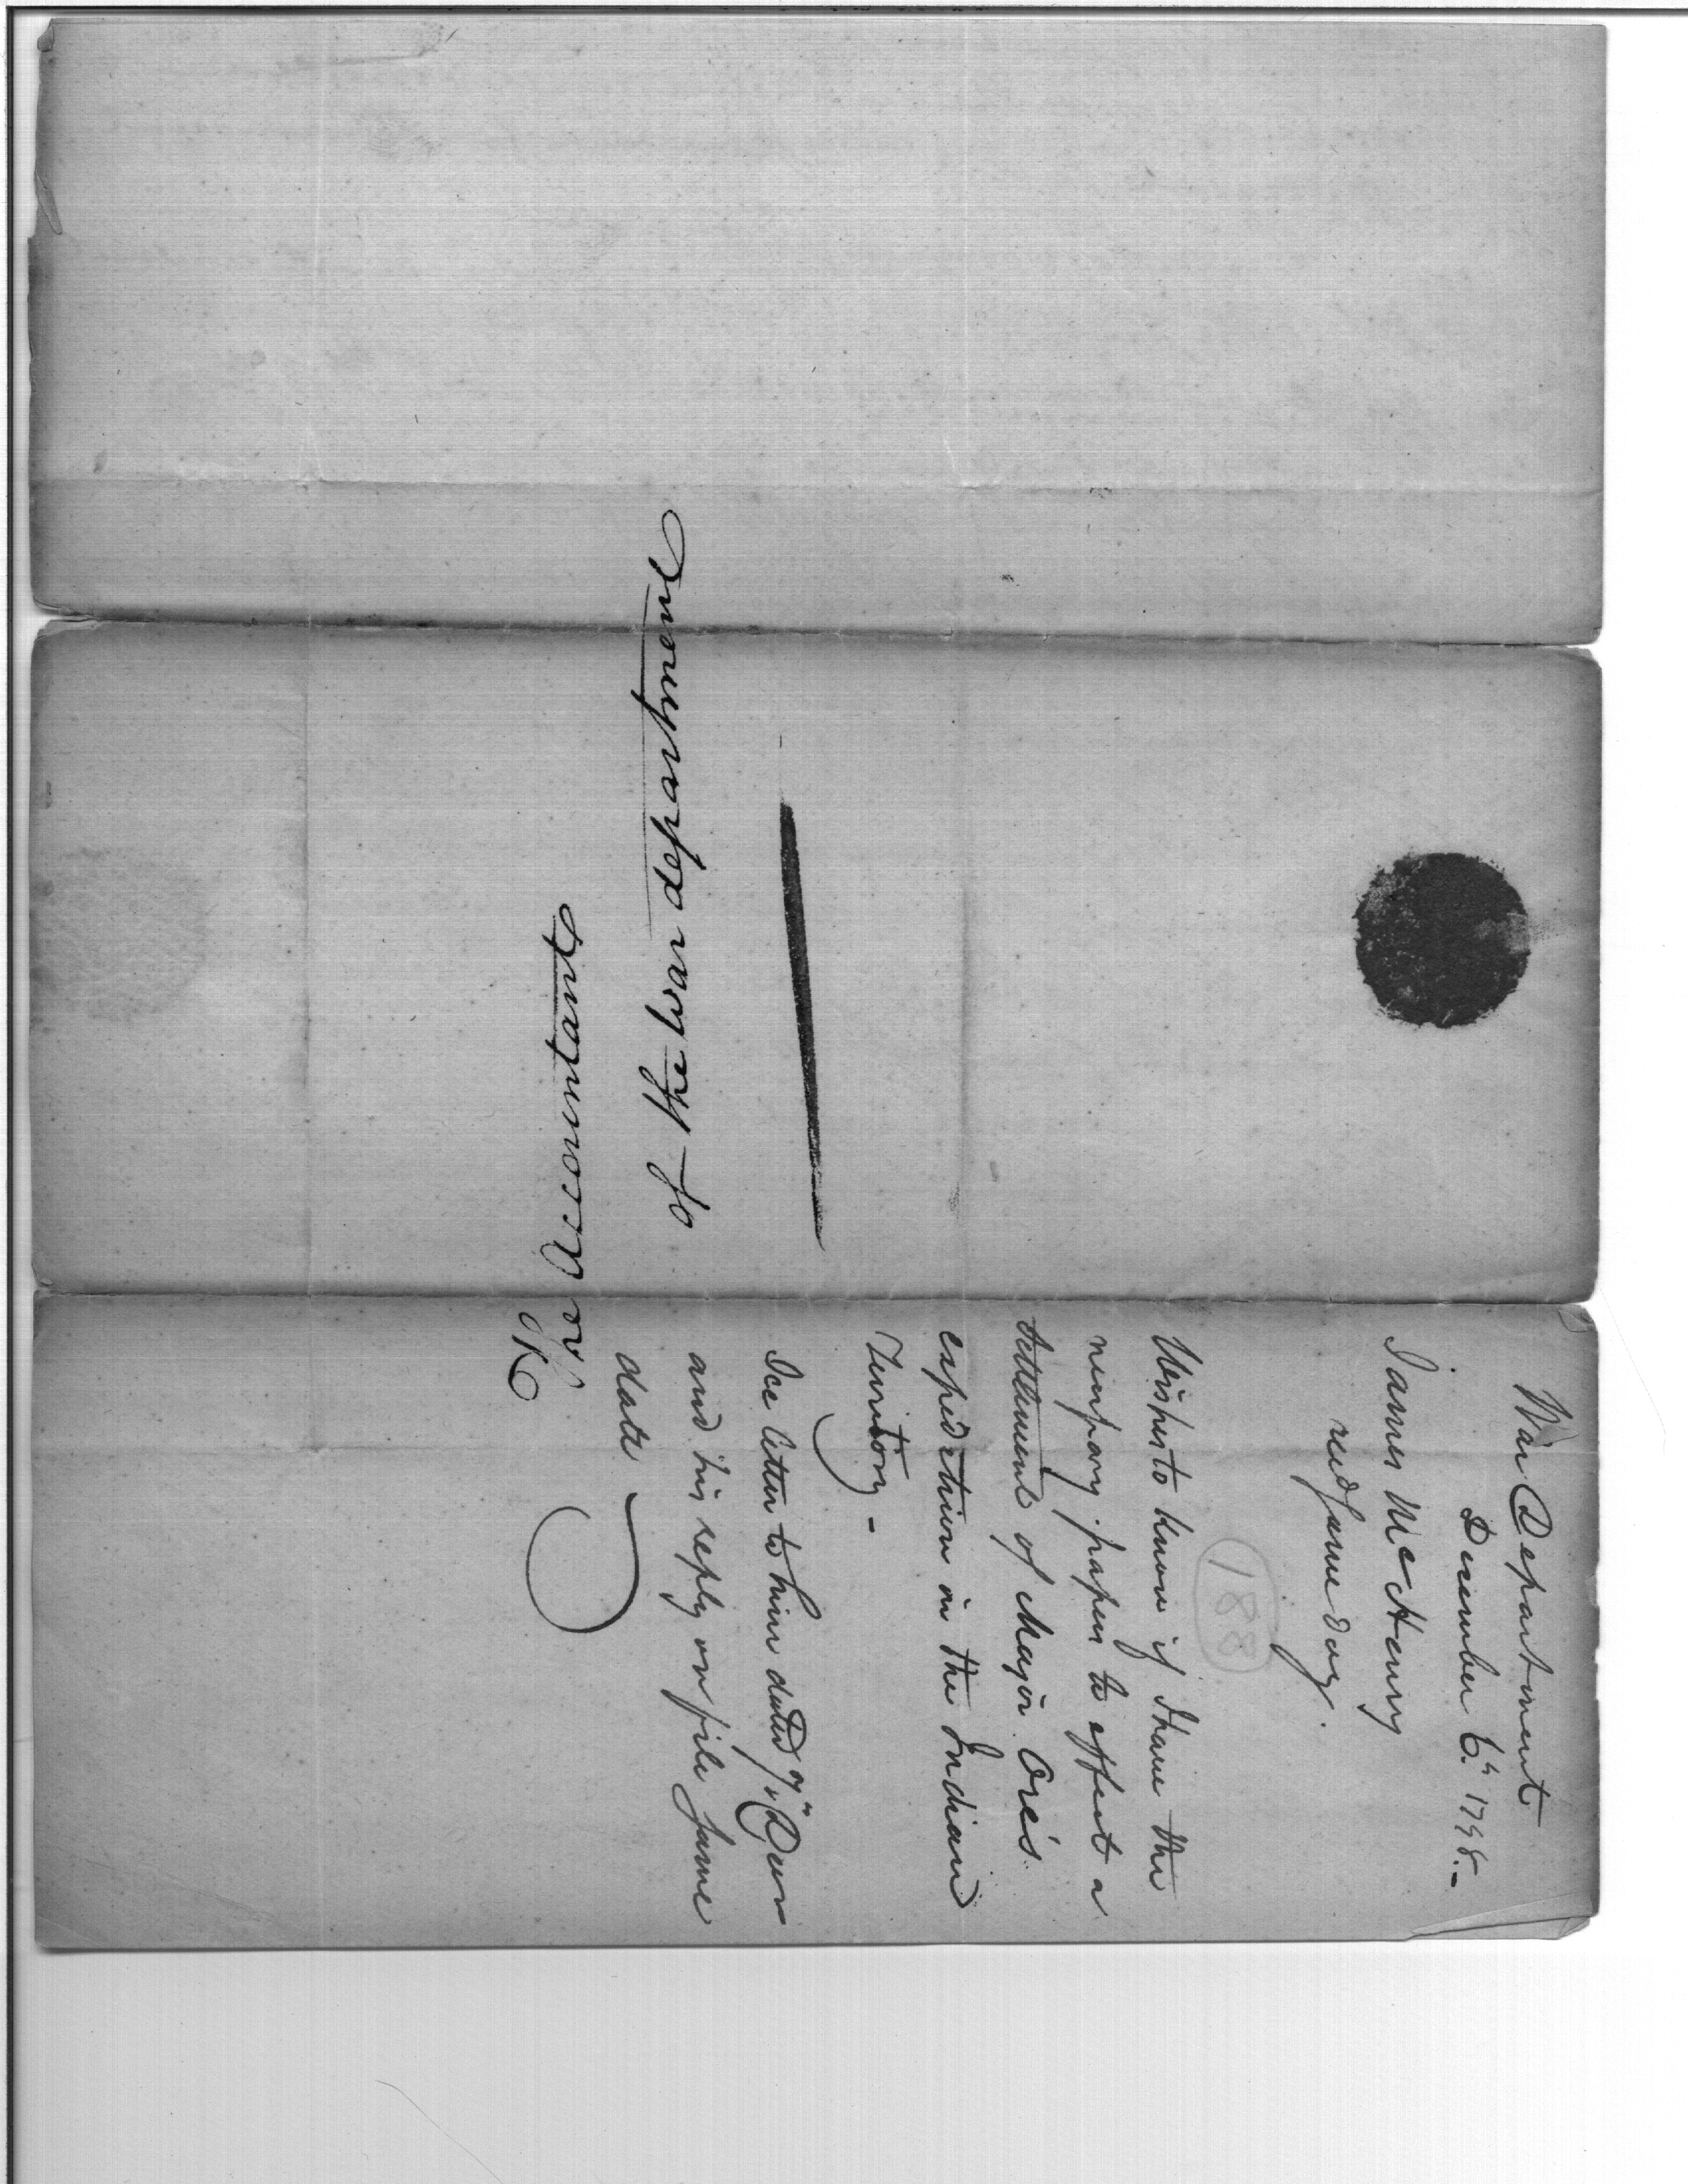 The Accountant
of the War department
War Department
December 6.th 1798.-
James McHenry
recd same day.
188
Wishes to know if I have the
necessary papers to effect a
settlement of Major Ore's
expedition in the Indian
Territory -
See letter to him dated 7th Decr
and his reply on file same
date